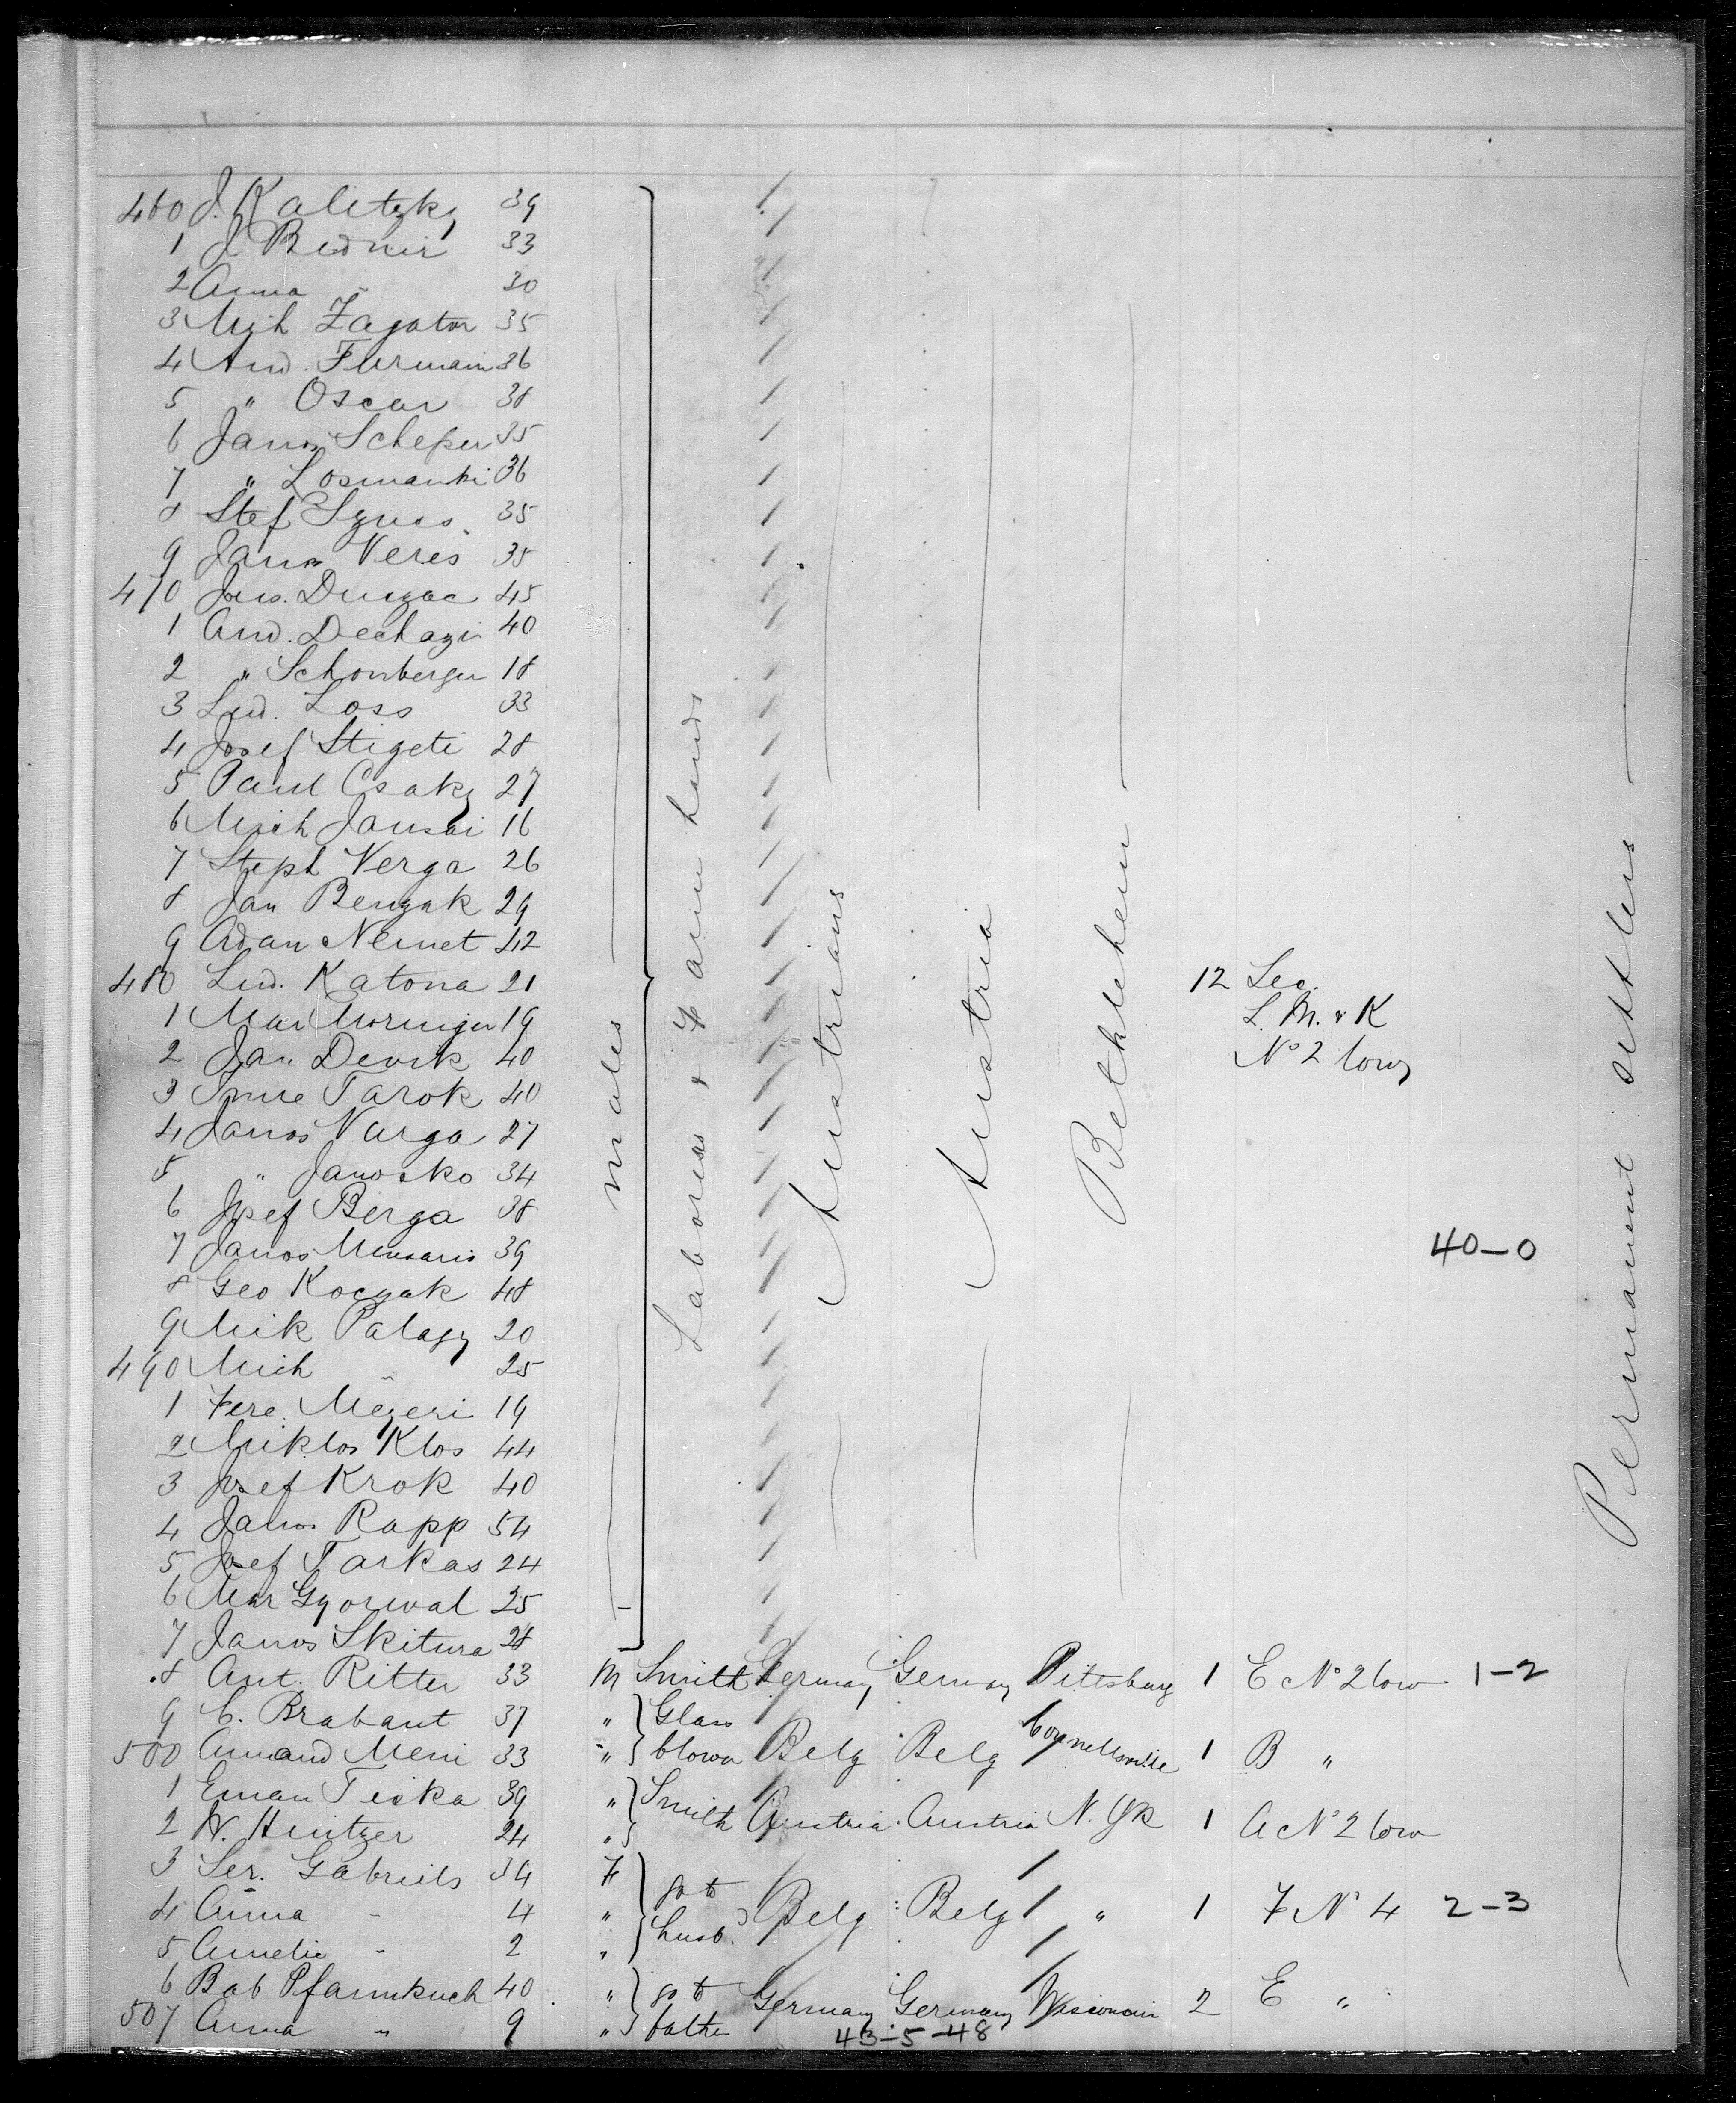 460 J. Kalitzky 39
1 J Bednir 33
2 Anna " 30
3 Mich Zagator 35
4 And. Furmain 36
5 " Oscar 38
6 Janos Scheper 35
7 " Losmanki 36
8 Stef 35
9 Janos Veres 35
470 Jno. Duczac 45
1 And. Dechazi 40
2 " Schonberger 18
3 Lud. Loss 33
4 Josef Stigeti 28
5 Paul Csaky 27
6 Mich Jansai 16
7 Steph Verga 26
8 Jan Benzak 29
9 Adam Nemet 42
480 Lud. Katona 21 12 Sec.
1 Max Moringer 19 L. M. " K
2 Jan Devik 40 No 2 low
3 Imre Tarok 40
4 Janos Varga 27
5 " Janosko 34
6 Josef Berga 38
7 Janos Mensaris 39 40-0
8 Geo Koczak 48
9 Mik Palagy 20
490 Mich " 25
1 Fere. Megeri 19
2 Miklos Klos 44
3 Josef Krok 40
4 Janos Rapp 54
5 Josef Tarkas 24
6 Mar Gyorwal 25
7 Janos Skitura 28
males
Labores & Farm hands
Austrians
Austria
Bethlehem
Permanent settlers
8 Ant. Ritter 33 M Smith Germany Germany Pittsburg 1 E No 2 low 1-2
9 C. Brabant 37 " Glass
500 Armand Meni 33 " blower Belg Belg Coynellsville 1 B "
1 Eman Tiska 39 "
2 W. Hintzer 24 " Smith Austria Austria N. Yk 1 A No 2 low
3 Ser. Gabriels 34 F go to
4 Anna " 4 " husb. Belg Belg " 1 F No 4 2-3
5 Amelie " 2 "
6 Bab Pfannkuch 40 " go to Germany Germany Wisconsin 2 E "
507 Anna " 9 " father
43-5-48